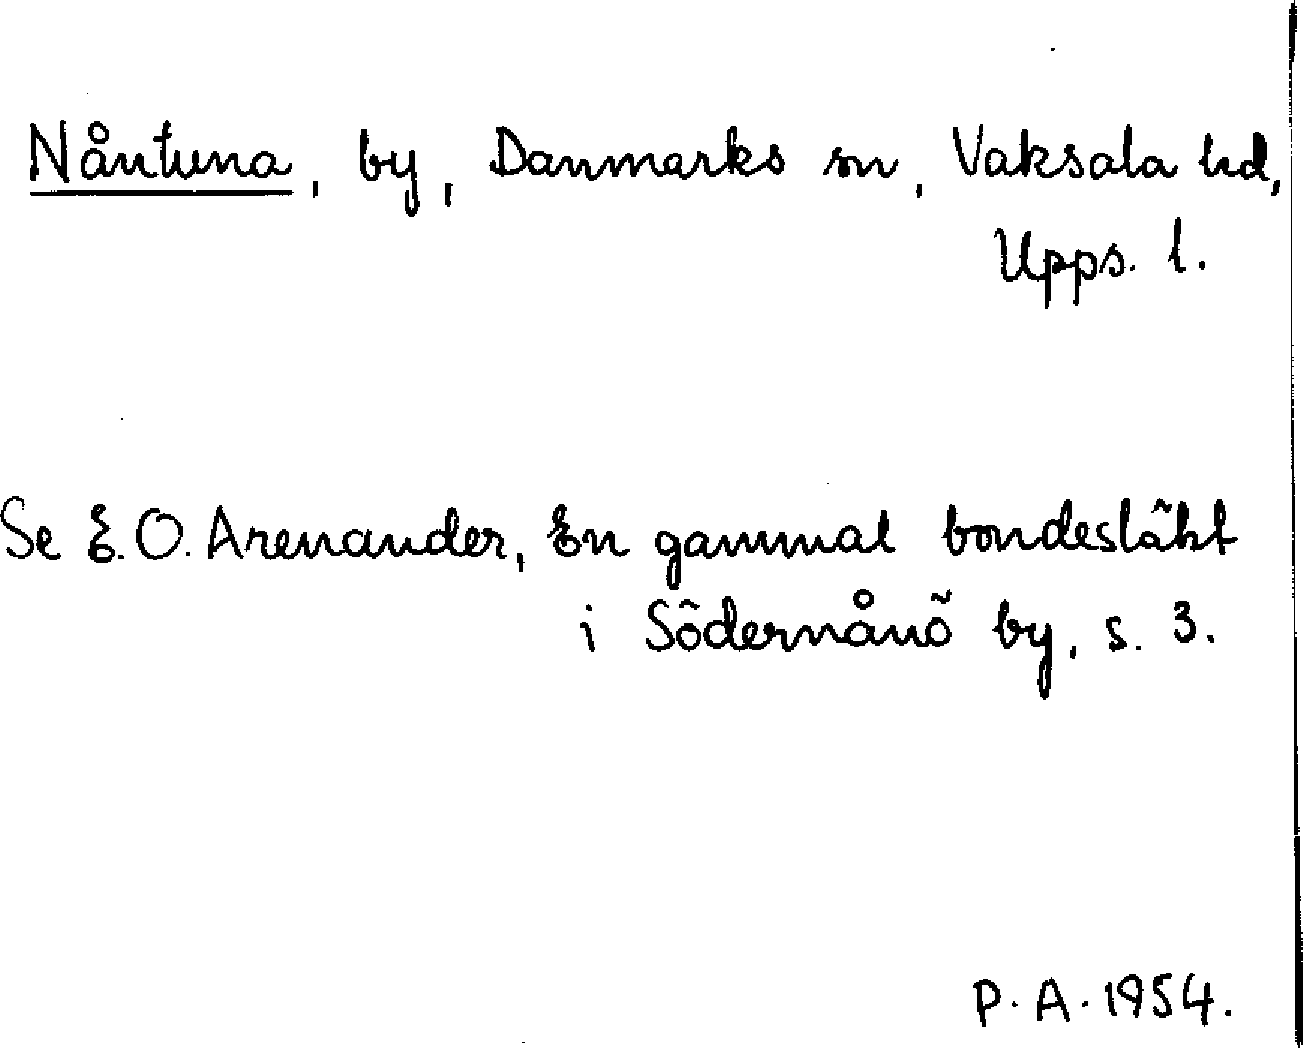 Nåntuna, by, Danmarks sn, Vaksala hd,
Upps. l.
Se E. O. Arenander, En gammal bondesläkt
i Södernånö by, s. 3.
P. A. 1954.